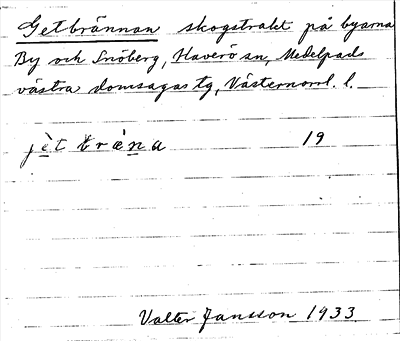 Getbrännan skogstrakt på byarna
By och Snöberg, Haverö sn, Medelpads
västra domsagas tg, Västernorrl. l.
jèt bræ̀na 19
Valter Jansson 1933.